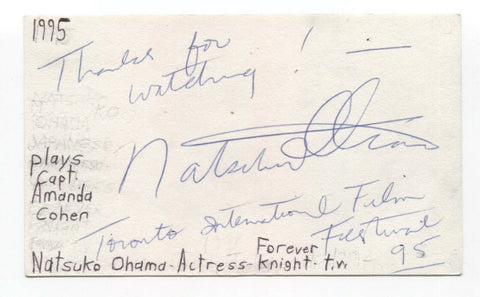 1995
Thanks for
watching! —
Natsuko Ohama
plays
Capt.
Amanda
Cohen
Toronto International Film
Festival
95
Natsuko Ohama-Actress-Forever Knight-t.v.